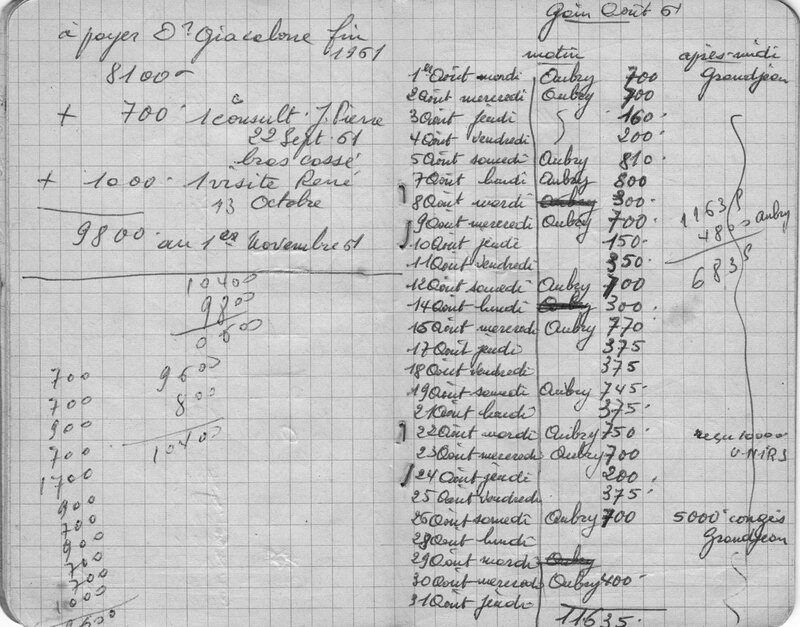 à payer Dr Giacalone fin
1961
8100
+ 700 1 consult. J. Pierre
22 Sept. 61
bras cassé
+ 1000 1 visite René
13 Octobre
9800 au 1er Novembre 61
10400
9800
0600
9600
800
10400
700
700
900
700
1700
900
700
900
700
700
1000
9600
Gain Août 61
matin après-midi
1er Août mardi Aubry 700 Grandjean
2 Août mercredi Aubry 700
3 Août jeudi 160
4 Août vendredi 200
5 Août samedi Aubry 810
7 Août lundi Aubry 800
8 Août mardi Aubry 300
9 Août mercredi Aubry 700
10 Août jeudi 150
11 Août vendredi 350
12 Août samedi Aubry 700
14 Août lundi Aubry 300
11635
4800 Aubry
6835
16 Août mercredi Aubry 770
17 Août jeudi 375
18 Août vendredi 375
19 Août samedi Aubry 745
21 Août lundi 375
22 Août mardi Aubry 750 reçu 10000
23 Août mercredi Aubry 700 U.N.I.R.S
24 Août jeudi 200
25 Août vendredi 375
26 Août samedi Aubry 700 5000 congés
28 Août lundi Grandjean
29 Août mardi Aubry
30 Août mercredi Aubry 400
31 Août jeudi
11635